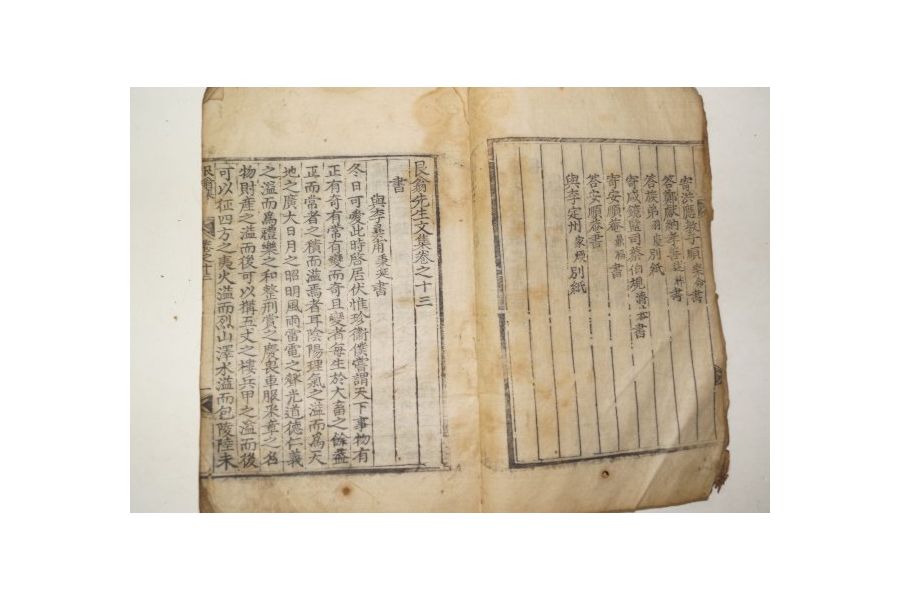 寄洪應教子順樂命書
答鄭獻納孝善述祚書
答族弟慶別紙
寄咸鏡監司蔡伯規濟恭書
寄安順庵鼎福書
答安順庵書
與李定州家煥別紙
艮翁先生文集卷之十三
書
與李彝甫秉延書
冬日可愛此時啓居伏惟珍衛僕嘗謂天下事物有
正有奇有常有變而奇且變者每生於大畜之餘蓋
正而常者之積而溢焉者耳陰陽理氣之溢而爲天
地之廣大日月之昭明風雨雷電之穌光道德仁義
之溢而爲禮樂之和整刑賞之慶喪車服釆章之名
物財産之溢而後可以構五丈之樓兵甲之溢而後
可以征四方之夷火溢而烈山澤水溢而包陵陸未
艮翁集 卷之十三